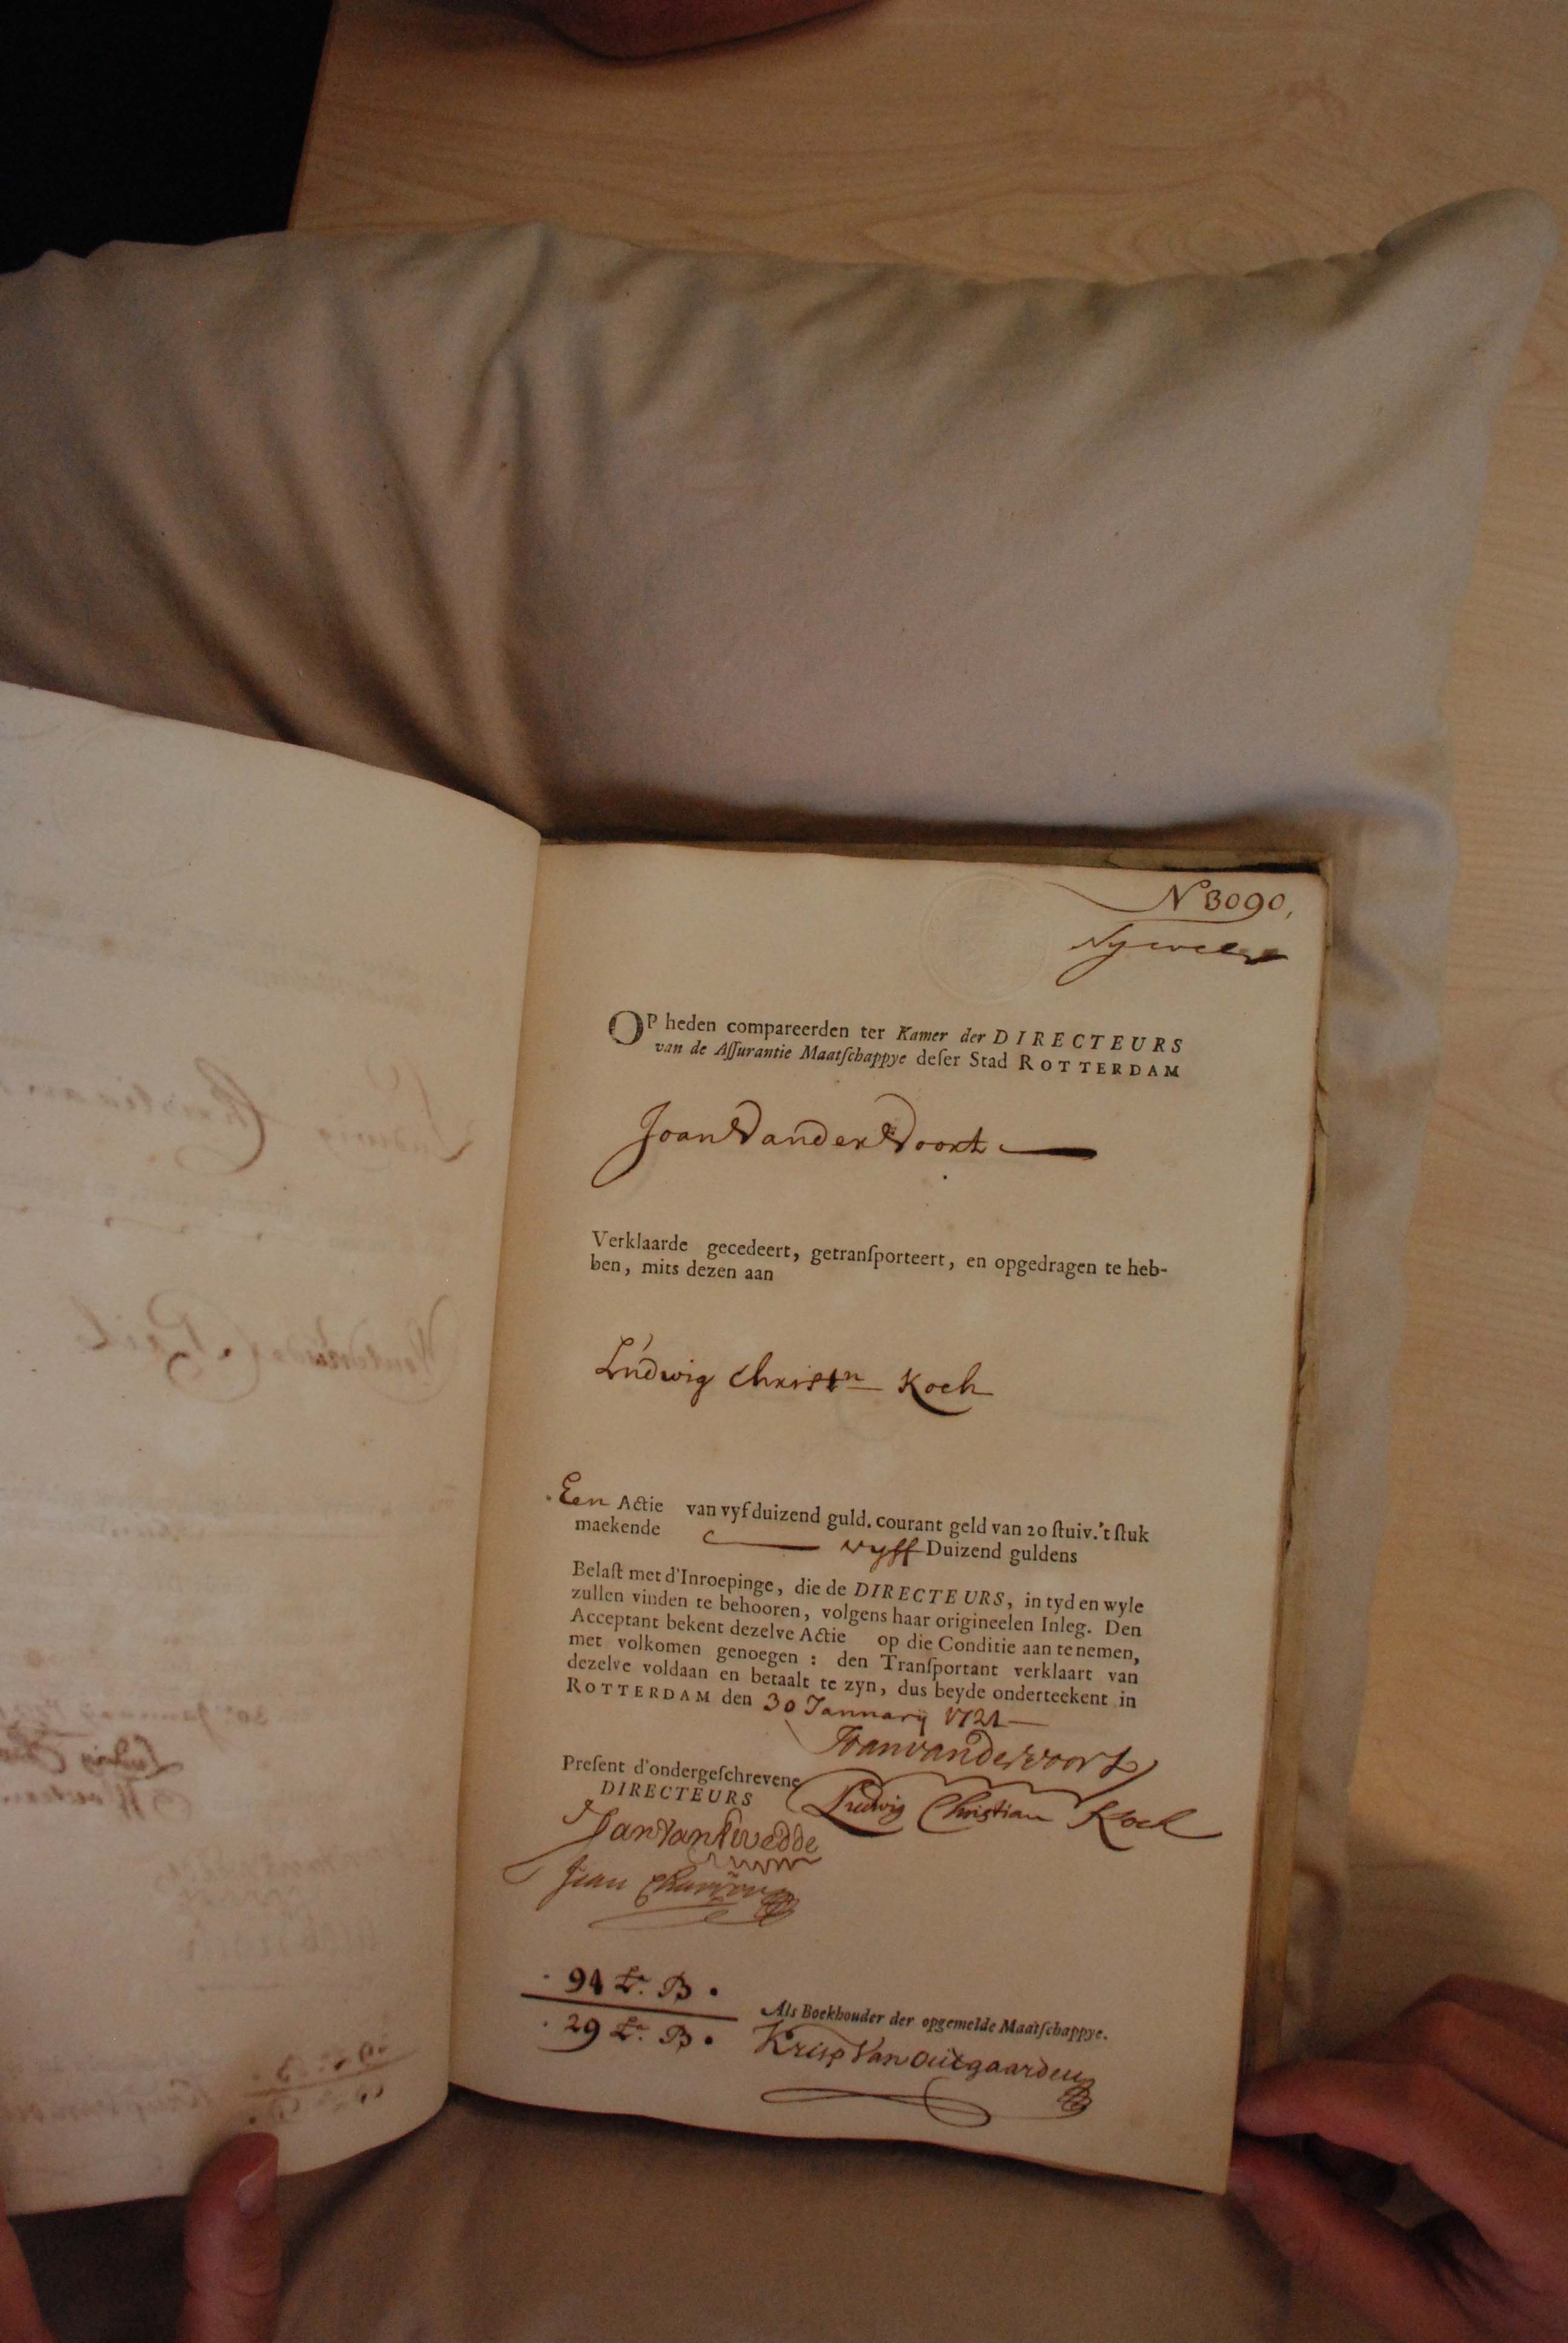 N 3090,
OP heden compareerden ter Kamer der DIRECTEURS
van de Aſſurantie Maatſchappye deſer Stad ROTTERDAM
Joan Vander Voort
Verklaarde gecedeert, getranſporteert, en opgedragen te heb-
ben, mits dezen aan
Ludwig Christn Koch
Een Actie van vyf duizend guld. courant geld van 20 ſtuiv. 't ſtuk
maekende vyff Duizend guldens
Belaſt met d'Inroepinge, die de DIRECTEURS, in tyd en wyle
zullen vinden te behooren, volgens haar origineelen Inleg. Den
Acceptant bekent dezelve Actie op die Conditie aan te nemen,
met volkomen genoegen : den Tranſportant verklaart van
dezelve voldaan en betaalt te zyn, dus beyde onderteekent in
ROTTERDAM den 30 January 1721
Joan vander voort
Preſent d'ondergeſchrevene
DIRECTEURS
Ludwig Christian Koch
Jan Van
Jean
94 Lr. B.
29 Lr. B.
Als Boekhouder der opgemelde Maatſchappye.
Krisp Van Outgaarden